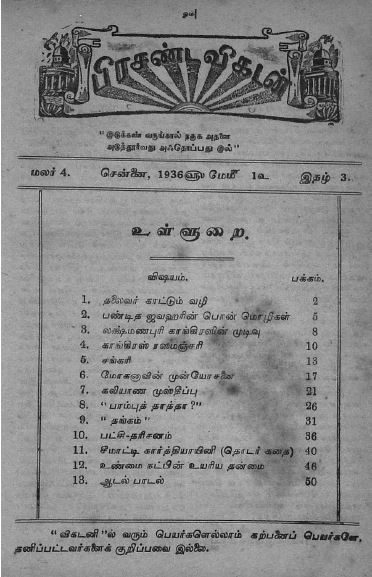 ௐ
பிரசண்ட விகடன்
"இடுக்கண் வருங்கால் நகுக அதனை
அடுத்தூர்வது அஃதொப்பது இல்"
மலர் 4. சென்னை, 1936௵ மேமீ 1௳ இதழ் 3.
உள்ளுறை.
விஷயம். பக்கம்.
1. தலைவர் காட்டும் வழி 2
2. பண்டித ஜவஹரின் பொன் மொழிகள் 5
3. லக்ஷ்மணபுரி காங்கிரஸின் முடிவு 8
4. காங்கிரஸ் ரஸமஞ்சரி 10
5. சங்கரி 13
6. மோகனாவின் முன்யோசனை 17
7. கலியாண முஸ்தீப்பு 21
8. "பாம்புத் தாத்தா?" 26
9. "தங்கம்" 31
10. பட்சி-தரிசனம் 36
11. சீமாட்டி கார்த்தியாயினி (தொடர் கதை) 40
12. உண்மை நட்பின் உயரிய தன்மை 46
13. ஆடல் பாடல் 50
"விகடனி"ல் வரும் பெயர்களெல்லாம் கற்பனைப் பெயர்களே,
தனிப்பட்டவர்களைக் குறிப்பவை இல்லை.